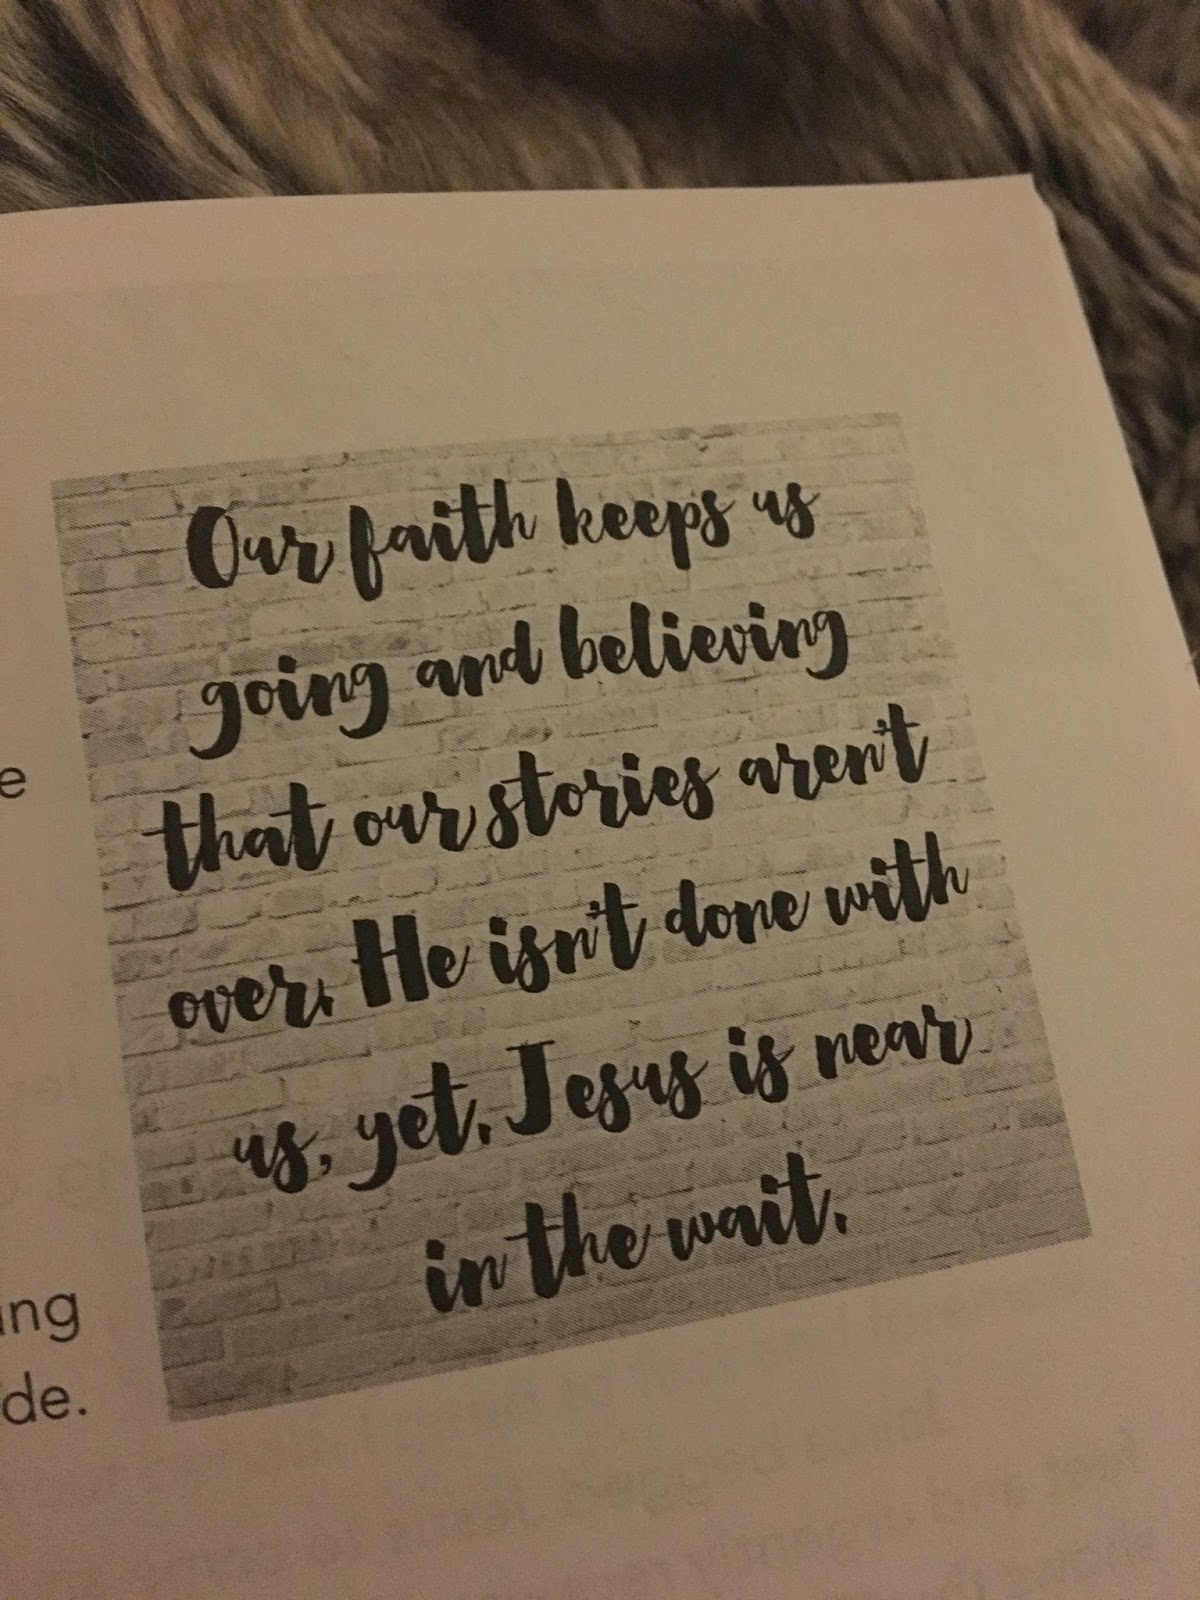 Our faith keeps us
going and believing
that our stories aren't
over. He isn't done with
us, yet. Jesus is near
in the wait.
e
ing
de.